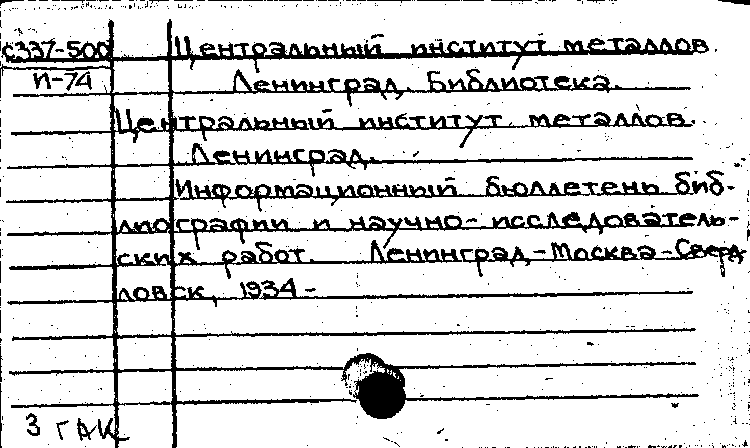 С337-500 Центральный институт металлов.
И-74 Ленинград. Библиотека.
Центральный институт металлов.
Ленинград.
Информационный бюллетень биб-
лиографии и научно-исследователь-
ских работ. Ленинград-Москва-Сверд
ловск, 1934-
3 ГАК